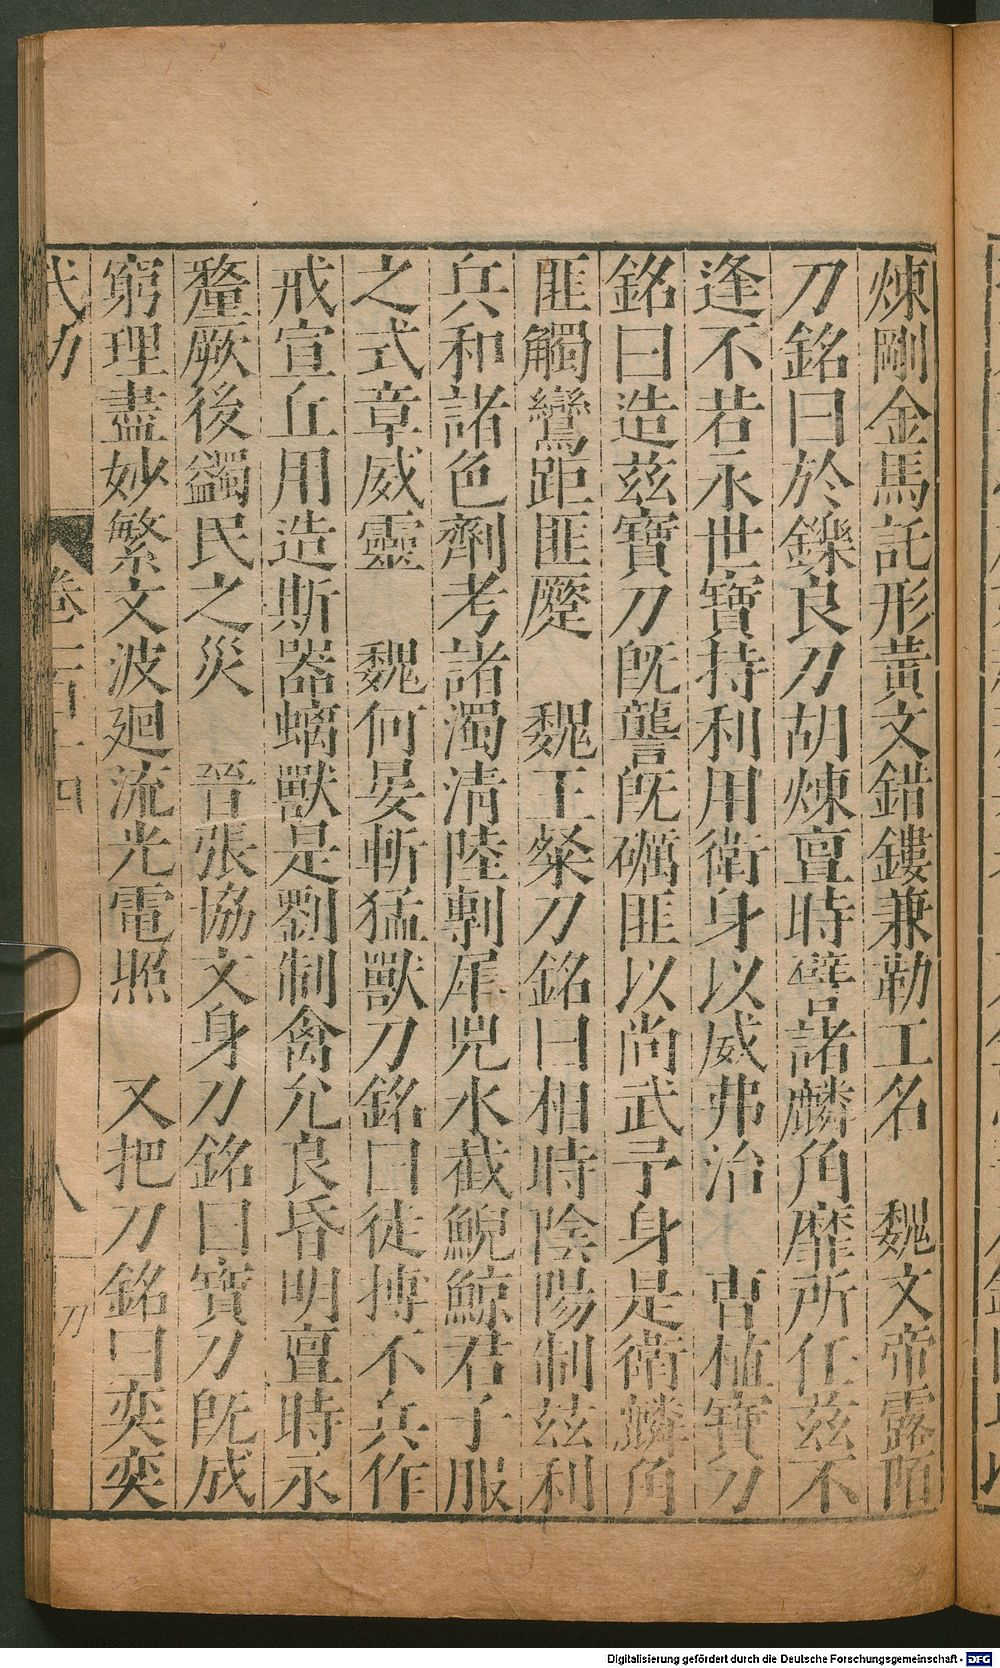 煉剛金馬託形黃文錯鏤兼勒工名　魏文帝露陌
刀銘曰於鑠良刀胡煉亶時譬諸麟角靡所任兹不
逢不若永世寶持利用衛身以威弗治　曹植寶刀
銘曰造兹寶刀旣礱旣礪匪以尚武予身是衛麟角
匪觸鸞距匪蹷　魏王粲刀銘曰相時陰陽制兹利
兵和諸色劑考諸濁清陸剸犀兕水截鯢鯨君子服
之式章威靈　魏何晏斬猛獸刀銘曰徒摶不兵作
戒宣丘用造斯器螭獸是劉制禽允良昏明亶時永
釐厥後蠲民之災　晉張協文身刀銘曰寶刀旣成
窮理盡妙繁文波廻流光電照　又把刀銘曰奕奕
武功 卷二百十四 八 刀
Digitalisierung gefördert durch die Deutsche Forschungsgemeinschaft - DFG